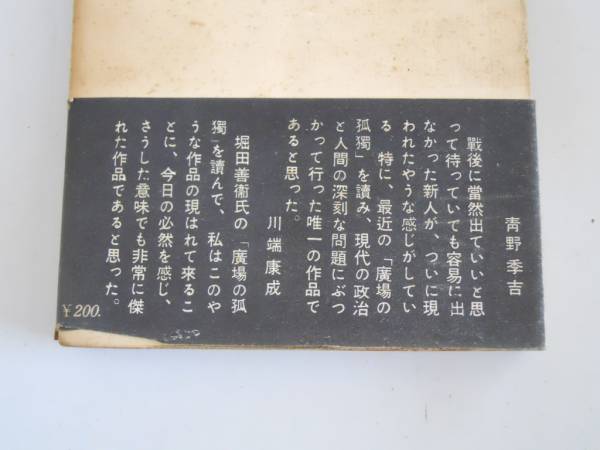 青野季吉
戰後に當然出ていいと思
って待っていても容易に出
なかった新人が、ついに現
われたやうな感じがしてい
る。特に、最近の「廣場の
孤獨」を読み、現代の政治
と人間の深刻な問題にぶつ
かって行った唯一の作品で
あると思った。
川端康成
堀田善衞氏の「廣場の孤
獨」を讀んで、私はこのや
うな作品の現はれて來るこ
とに、今日の必然を感じ、
さうした意味でも非常に傑
れた作品であると思った。
¥200.